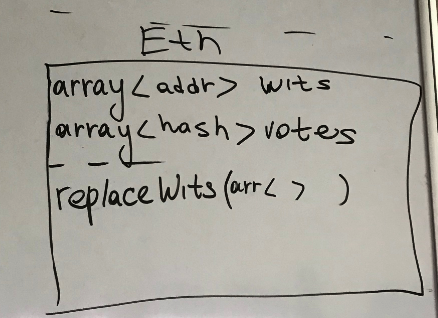 Eth
array<addr> wits
array<hash> votes
replaceWits(arr< > )